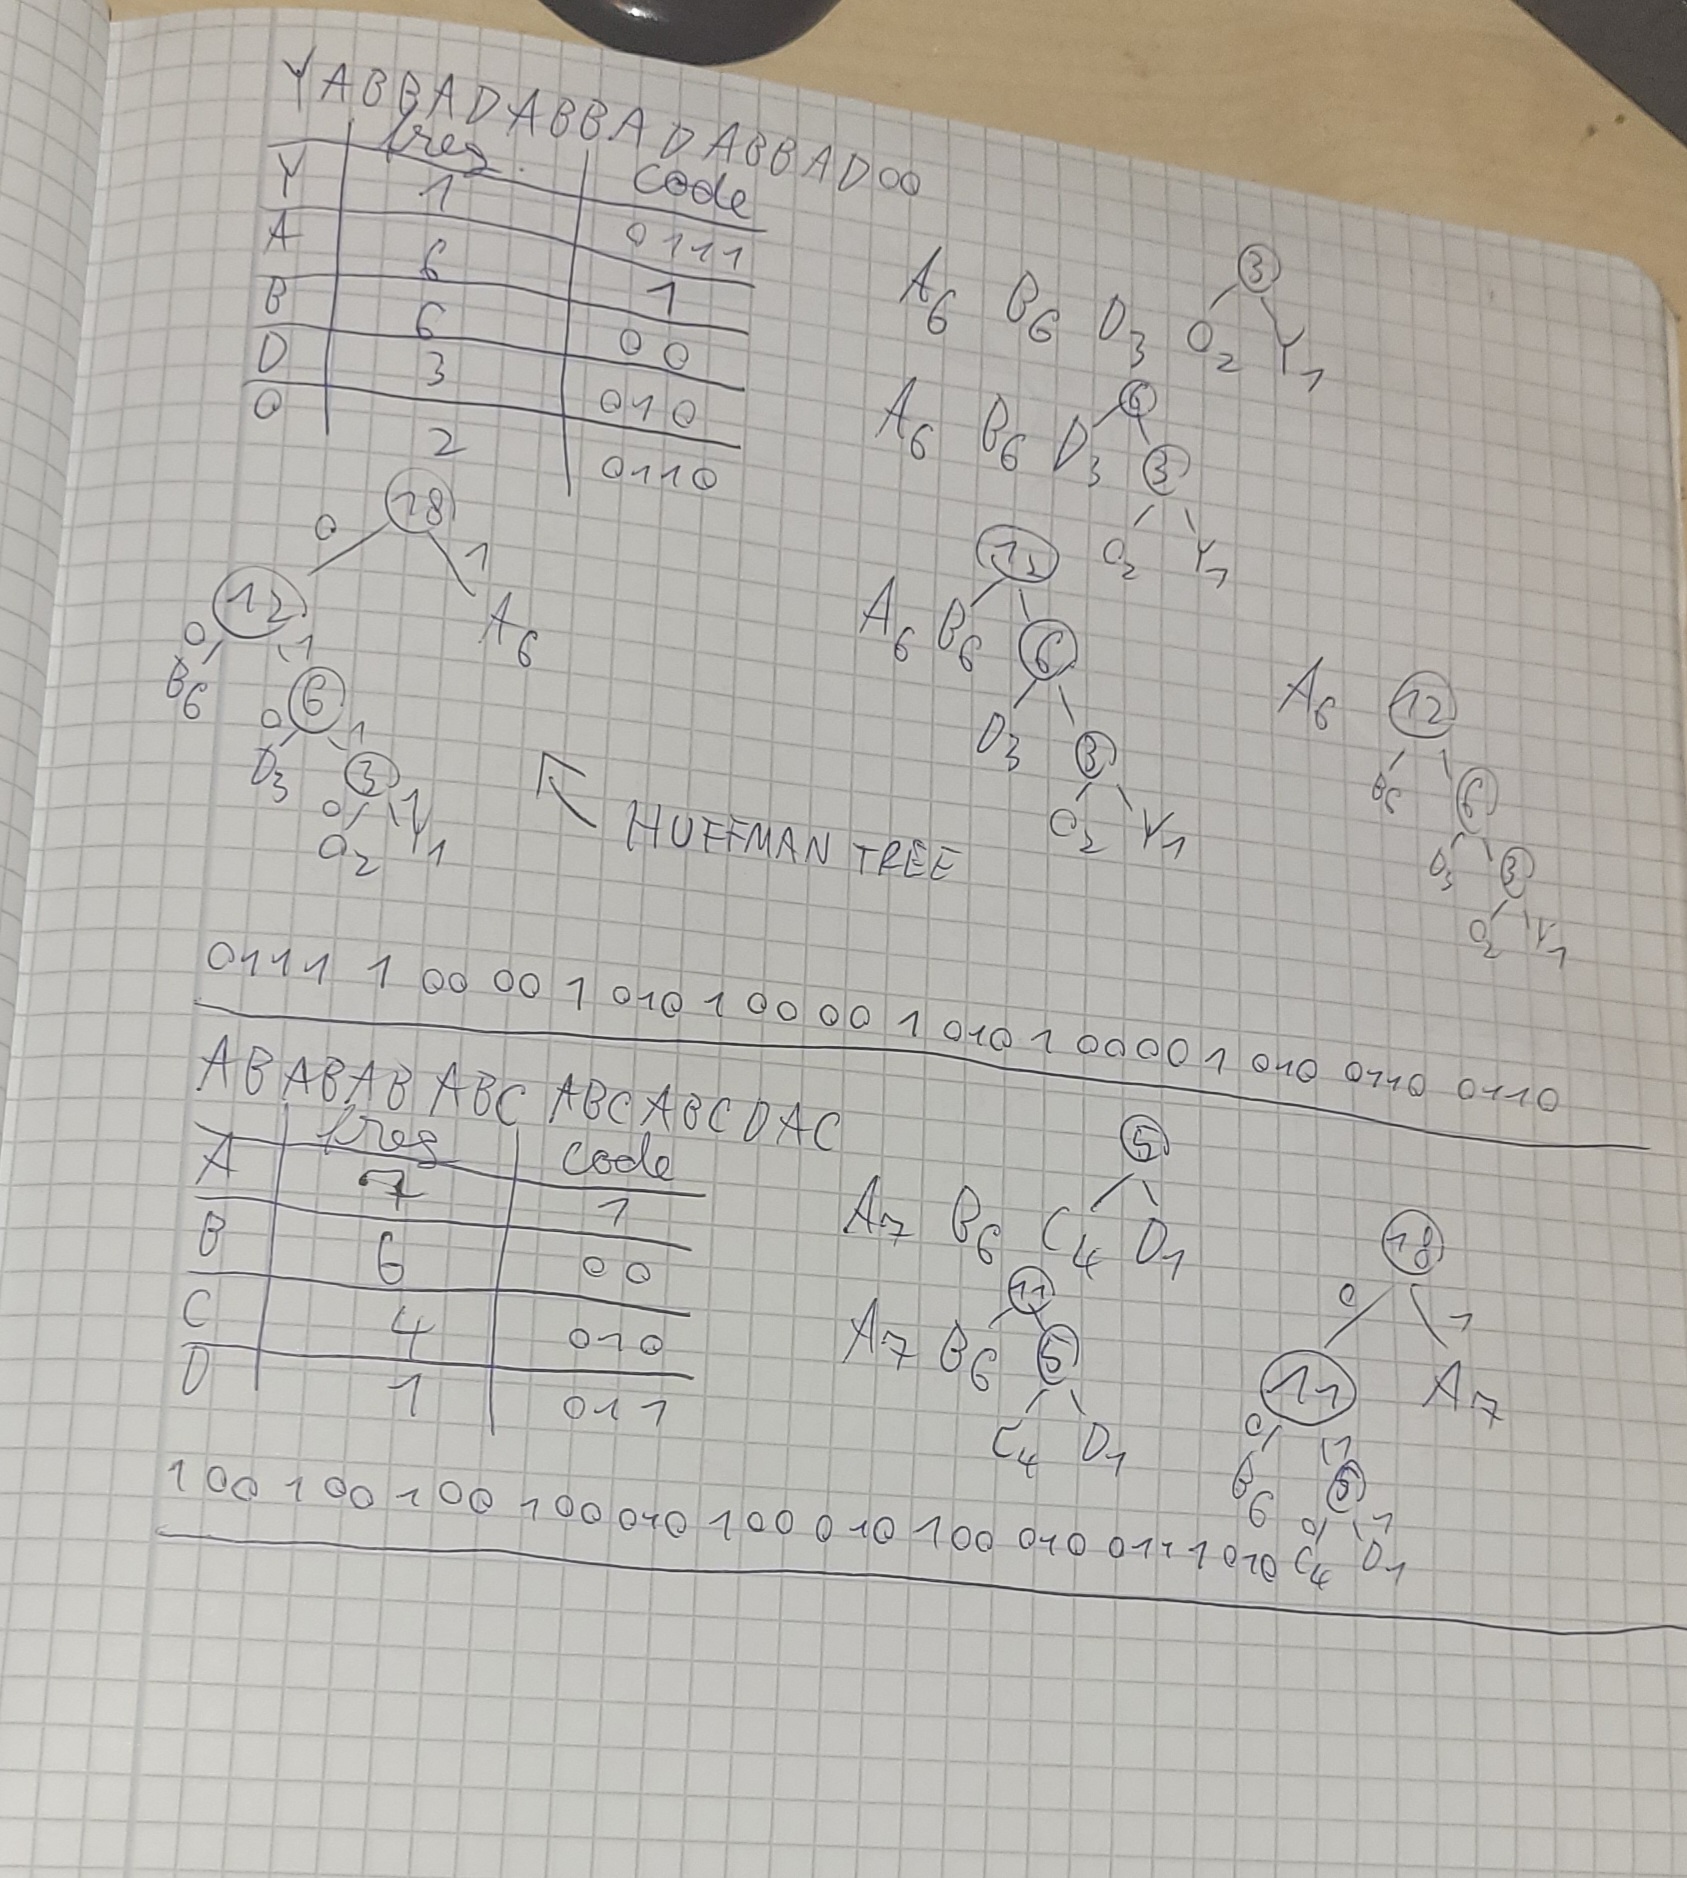 YABBADABBADABBADOO
freq. code
Y 1 0111
A 6 1
B 6 00
D 3 010
O 2 0110
3
A6 B6 D3 O2 Y1
6
A6 B6 D3 3
O2 Y1
12
A6 B6 6
D3 3
O2 Y1
A6 12
B6 6
D3 3
O2 Y1
18
0 1
12 A6
0 1
B6 6
0 1
D3 3
0 1
O2 Y1
HUFFMAN TREE
0111 1 00 00 1 010 1 00 00 1 010 1 0000 1 010 0110 0110
ABABAB ABC ABCABCDAC
freq code
A 7 1
B 6 00
C 4 010
D 1 011
5
A7 B6 C4 D1
11
A7 B6 5
C4 D1
18
0 1
11 A7
0 1
B6 5
0 1
C4 D1
100 100 100 100 010 100 010 100 010 011 1 010